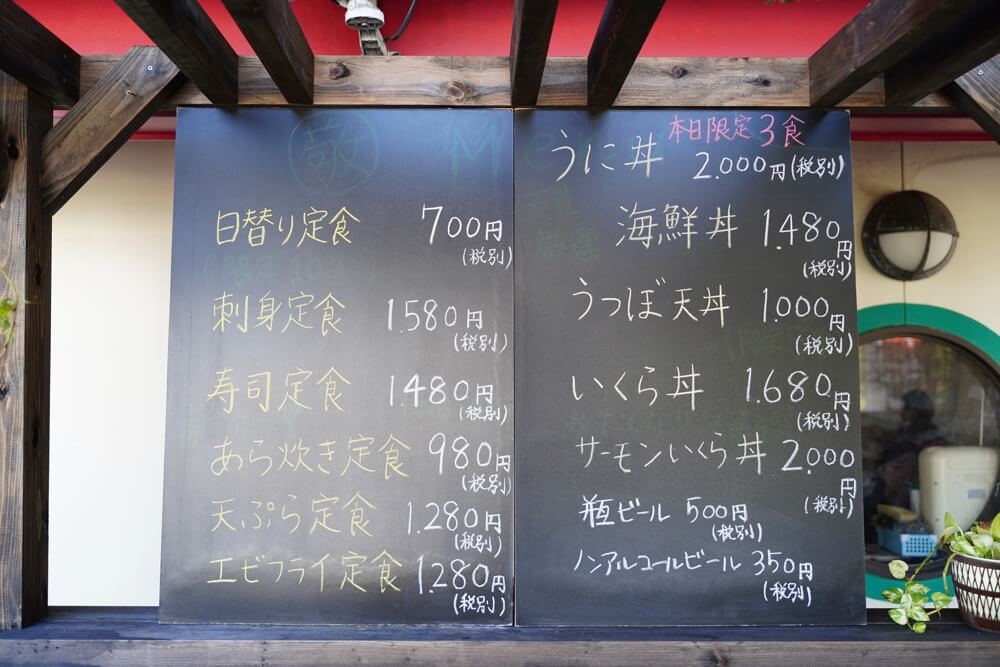 日替り定食 700円
(税別)
刺身定食 1.580円
(税別)
寿司定食 1.480円
(税別)
あら炊き定食 980円
(税別)
天ぷら定食 1.280円
(税別)
エビフライ定食 1.280円
(税別)
本日限定3食
うに丼 2.000円(税別)
海鮮丼 1.480円
(税別)
うつぼ天丼 1.000円
(税別)
いくら丼 1.680円
(税別)
サーモンいくら丼 2.000円
(税別)
瓶ビール 500円
(税別)
ノンアルコールビール 350円
(税別)